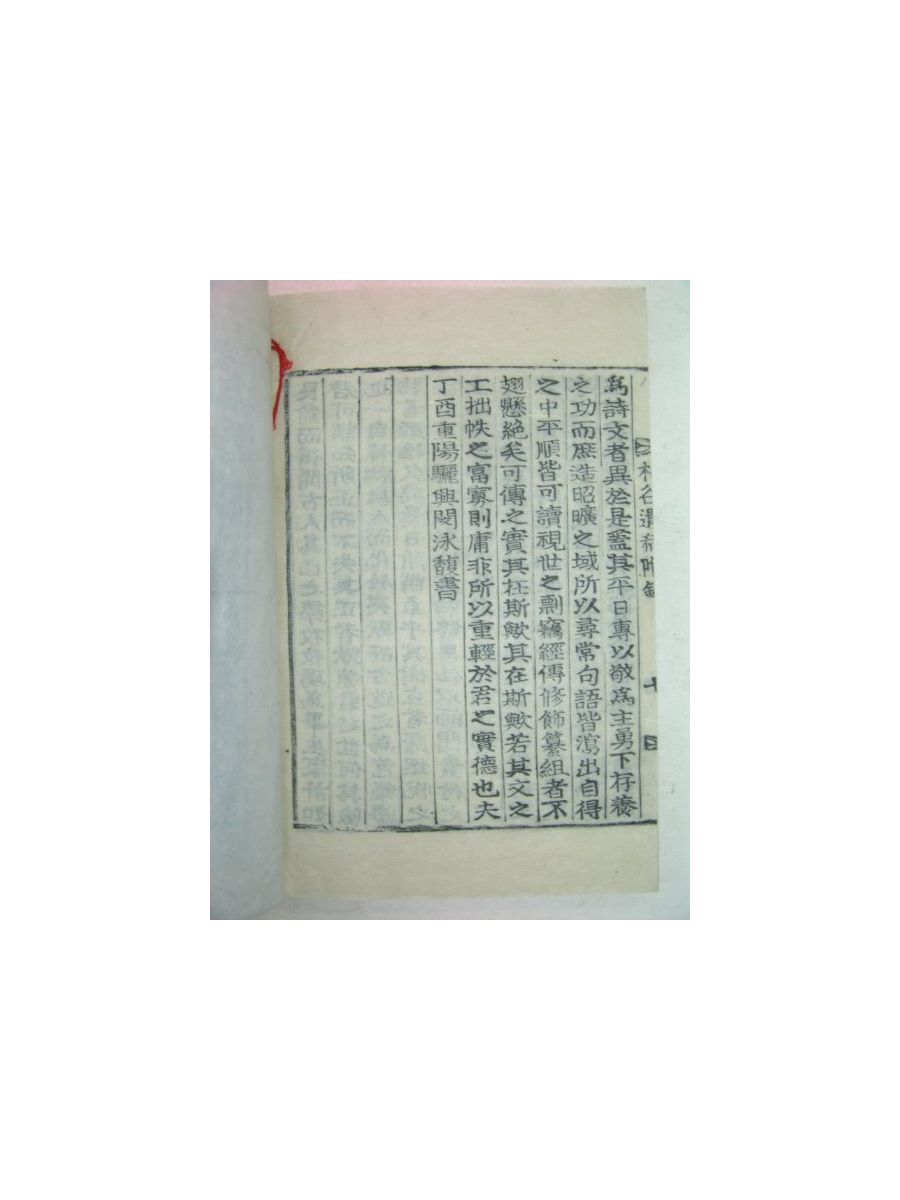 為詩文者異於是盖其平日專以敬為主勇下存養
之功而庶造昭曠之域所以尋常句語皆瀉出自得
之中平順皆可讀視世之剽竊經傳修飾纂組者不
翅懸絶矣可傳之實其在斯歟其在斯歟若其文之
工拙帙之富寡則庸非所以重輕於君之實德也夫
丁酉重陽驪興閔泳馥書
遺稿附錄